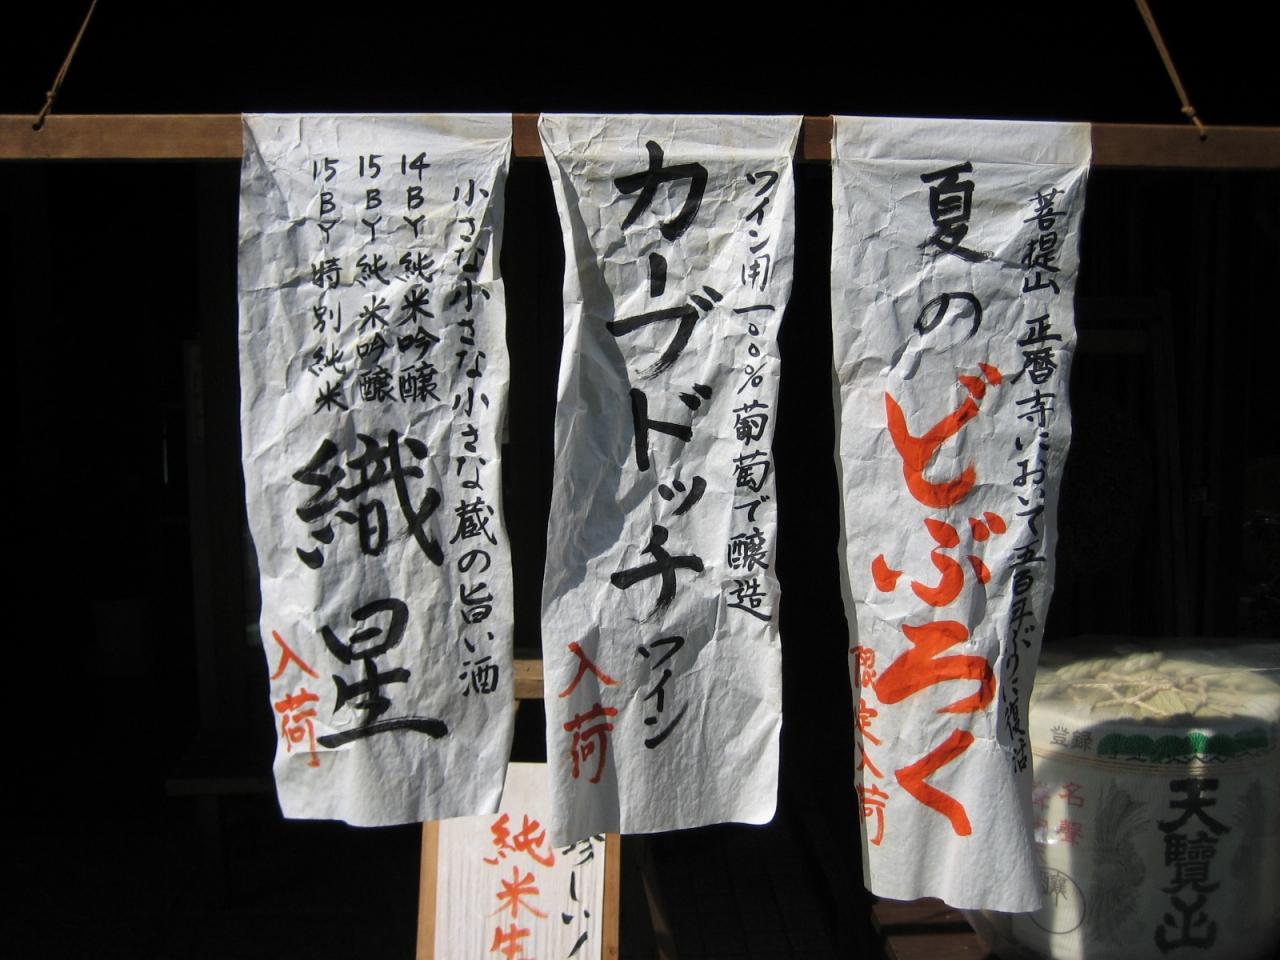 菩提山 正暦寺において五百年ぶりに復活
夏のどぶろく
限定入荷
ワイン用一〇〇%葡萄で醸造
カーブドッチワイン
入荷
小さな小さな小さな蔵の旨い酒
14BY 純米吟醸
15BY 純米吟醸
15BY 特別純米
織星
入荷
しい!
純米生
登録
名聲
天覽山